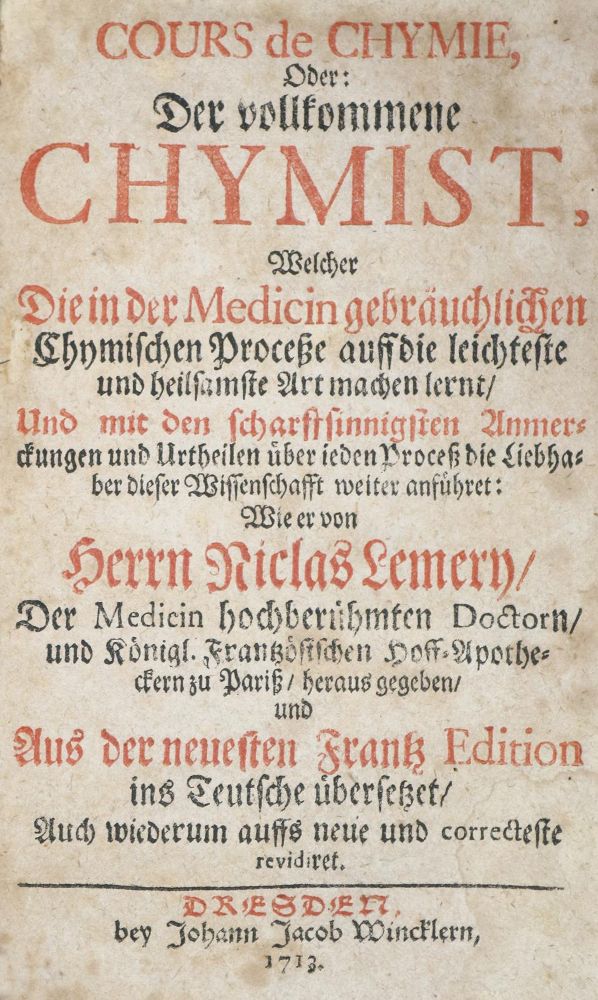 COURS de CHYMIE,
Oder:
Der vollkommene
CHYMIST,
Welcher
Die in der Medicin gebräuchlichen
Chymischen Proceße auff die leichteste
und heilsamste Art machen lernt/
Und mit den scharffsinnigsten Anmer-
ckungen und Urtheilen über ieden Proceß die Liebha-
ber dieser Wissenschafft weiter anführet:
Wie er von
Herrn Niclas Lemery/
Der Medicin hochberühmten Doctorn/
und Königl. Frantzösischen Hoff-Apothe-
ckern zu Pariß/ heraus gegeben/
und
Aus der neuesten Frantz Edition
ins Teutsche übersetzet/
Auch wiederum auffs neue und correcteste
revidiret.
DRESDEN,
bey Johann Jacob Wincklern,
1713.